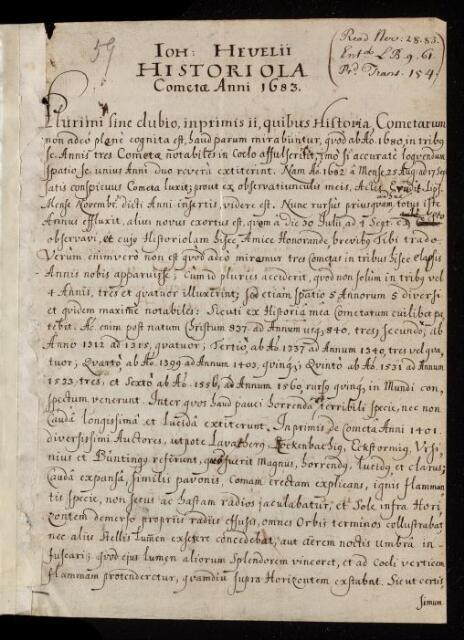 59
Read Nov: 28. 83.
Entd L.B. 9. 61
Pr. Trans. 154.
Ioh: Hevelii
HISTORIOLA
Cometæ Anni 1683.
Plurimi sine dubio, inprimis ii, quibus Historia Cometarum
non adeò planè cognita est, haud parum mirabuntur, quòd ab Ao. 1680, in tribq
se. Annis tres Cometæ notabiles in Coelo affulserint, imò si accuratè loquendum
spatio se. unius Anni duo reverà extiterint. Nam Ao. 1682 à Mense 25 Aug. ad 17 Sept
satis conspicuus Cometa luxit; prout ex observatiunculis meis, Actis Erudit. Lips.
Mense Novembr. dicti Anni insertis, videre est. Nunc rursus priusquam totus iste
Annus effluxit, alius novus exortus est, quem à die 30 Julii ad 4 Sept.
observavi, et cujq Historiolam hisce, Amice Honorande brevibq Tibi trado.
Verum enimverò non est quod adeò miremur tres Cometas in tribus hisce elapsis
Annis nobis apparuisse; cùm id pluries acciderit, quòd non solùm in tribq vel
4 Annis, tres et quatuor illuxerint; sed etiam spatio 5 Annorum 5 diversi
et quidem maximè notabiles: Sicuti ex Historiâ meâ Cometarum cuilibet pa-
tebit. Ac. enim post natum Christum 837. ad Annum usq 840, tres; secundò, ab
Anno 1312 ad 1315, quatuor; Tertiò, ab Ao. 1337 ad Annum 1340, tres vel qua-
tuor; Quartò, ab Ao. 1399 ad Annum 1403, quinq; Quintò ab Ao. 1531 ad Annum
1533, tres, et Sextò ab Ao. 1556, ad Annum 1560, rursq quinq, in Mundi con-
spectum venerunt. Inter quos haud pauci horrendâ, terribili specie, nec non
Caudâ longissimâ et Lucidâ extiterunt. Inprimis de Cometâ Anni 1401.
diversissimi Auctores, utpote Lavatherq, Rockenbachiq, Eckstormiq, Ursi-
nius et Büntingq referunt, quòd fuerit Magnus, horrendq, lucidq et clarus;
Caudâ expansâ, similis pavonis, Comam erectam explicans, ignis flamman-
tis specie, non secus ac hastam radios jaculabatur; et Sole infra Hori-
zontem demerso propriis radiis effusis, omnes Orbis terminos collustrabat,
nec aliis stellis Lumen exserere concedebat, aut aërem noctis umbrâ in-
fuscari; quòd ejus lumen aliorum splendorem vinceret, et ad Coeli verticem
flammam protenderetur, quamdiu supra Horizontem exstabat. Sicut certis-
simum